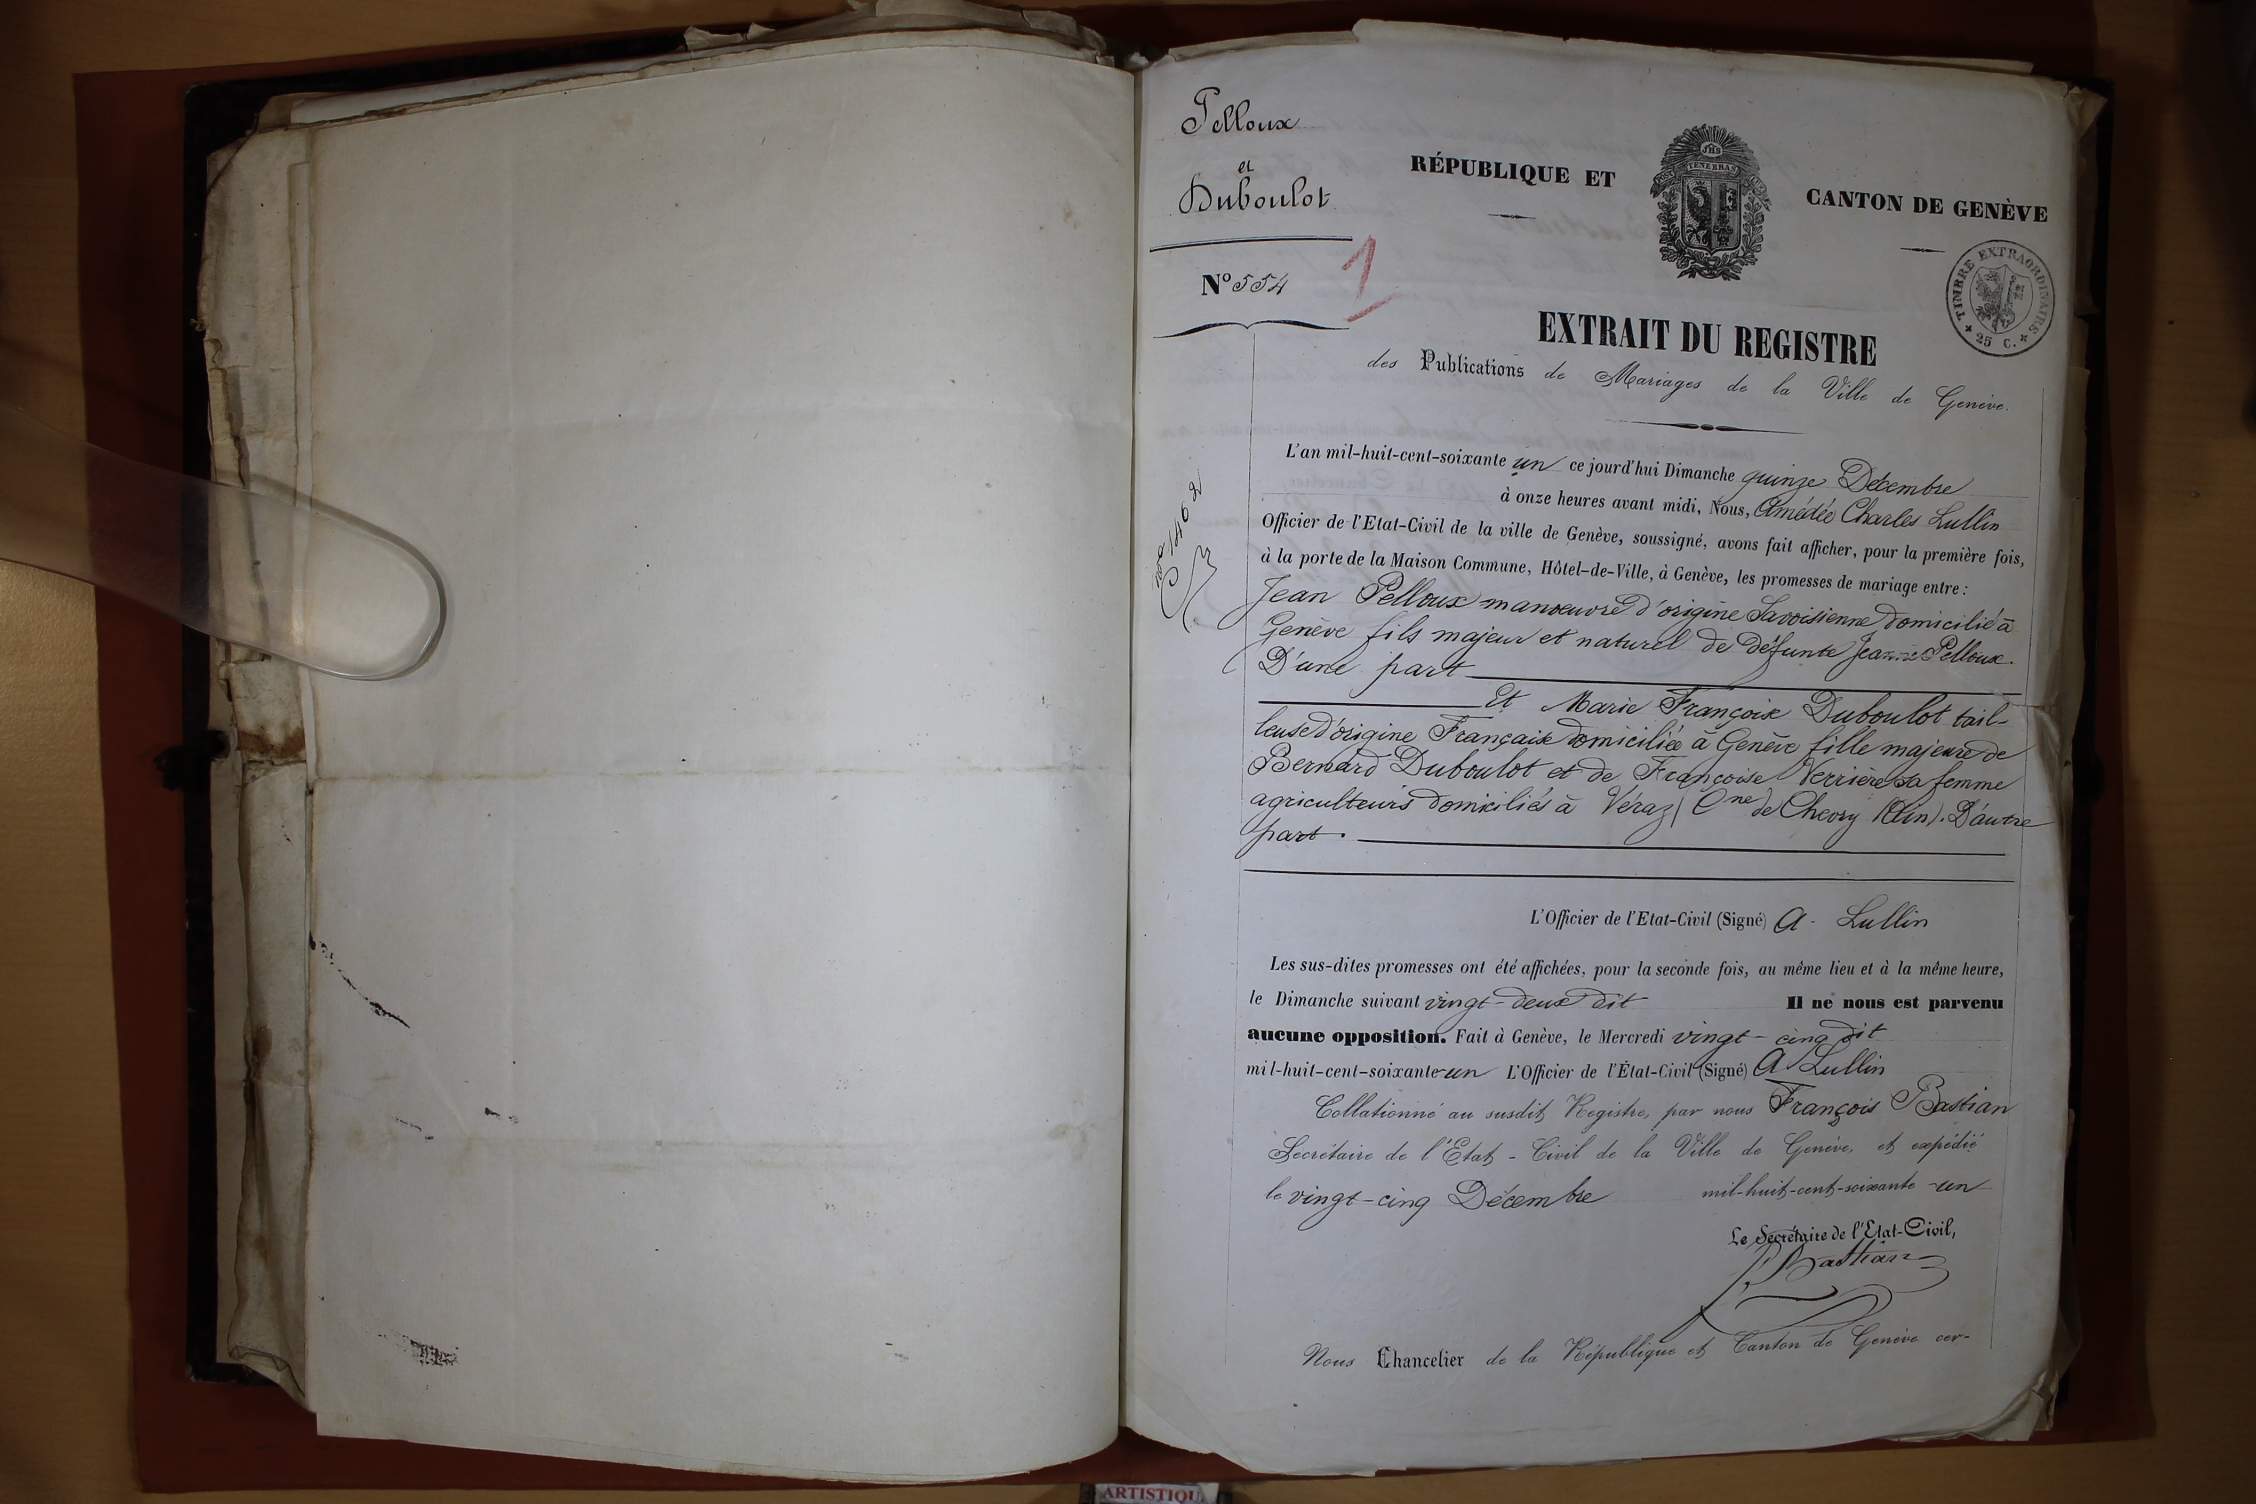 Pelloux
et
Duboulot
Nº 554
1
RÉPUBLIQUE ET CANTON DE GENÈVE
JHS
POST TENEBRAS LUX
TIMBRE EXTRAORDINAIRE
25 C.
EXTRAIT DU REGISTRE
des Publications de Mariages de la Ville de Genève.
L'an mil-huit-cent-soixante un ce jourd'hui Dimanche quinze Décembre
à onze heures avant midi, Nous, Amédée Charles Lullin
Officier de l'Etat-Civil de la ville de Genève, soussigné, avons fait afficher, pour la première fois,
à la porte de la Maison Commune, Hôtel-de-Ville, à Genève, les promesses de mariage entre:
Jean Pelloux manœuvre d'origine Savoisienne domicilié à
Genève fils majeur et naturel de défunte Jeanne Pelloux.
D'une part
Et Marie Françoise Duboulot tail-
leuse d'origine Française domiciliée à Genève fille majeure de
Bernard Duboulot et de Françoise Verrière sa femme
agriculteurs domiciliés à Véraz (Cne de Chevry (Ain). D'autre
part.
1462
L'Officier de l'Etat-Civil (Signé) A. Lullin
Les sus-dites promesses ont été affichées, pour la seconde fois, au même lieu et à la même heure,
le Dimanche suivant vingt-deux dit Il ne nous est parvenu
aucune opposition. Fait à Genève, le Mercredi vingt-cinq dit
mil-huit-cent-soixante-un L'Officier de l'État-Civil (Signé) A Lullin
Collationné au susdit Registre, par nous François Bastian
Secrétaire de l'Etat-Civil de la Ville de Genève, et expédié
le vingt-cinq Décembre mil-huit-cent-soixante-un
Le Secrétaire de l'Etat-Civil,
F. Bastian
Nous Chancelier de la République et Canton de Genève cer-
ARTISTIQU